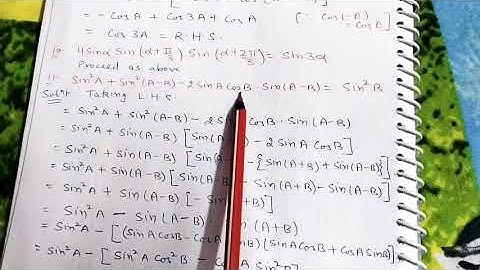 = -CosA + Cos3A + CosA [∵ Cos(-B) = CosB]
= Cos 3A = R.H.S.
10. 4Sinα Sin(α+π/3) Sin(α+2π/3) = Sin3α
Proceed as above
11. Sin²A + Sin²(A-B) - 2SinA CosB · Sin(A-B) = Sin²B
Solⁿ: Taking L.H.S
= Sin²A + Sin²(A-B) - 2 CosB · Sin(A-B)
= Sin²A + Sin(A-B) [Sin(A-B) - 2SinA CosB]
= Sin²A + Sin(A-B) - {Sin(A+B) + Sin(A-B)}]
= Sin²A + Sin(A-B) [Sin Sin(A+B) - Sin(A-B)]
= Sin²A + Sin(A-B) [-Sin
= Sin²A - Sin(A-B) (A+B)
= Sin²A - [(SinA CosB - Cos )(SinA CosB + CosA SinB)]
= Sin²A - [Sin²A Cos²B - Cos